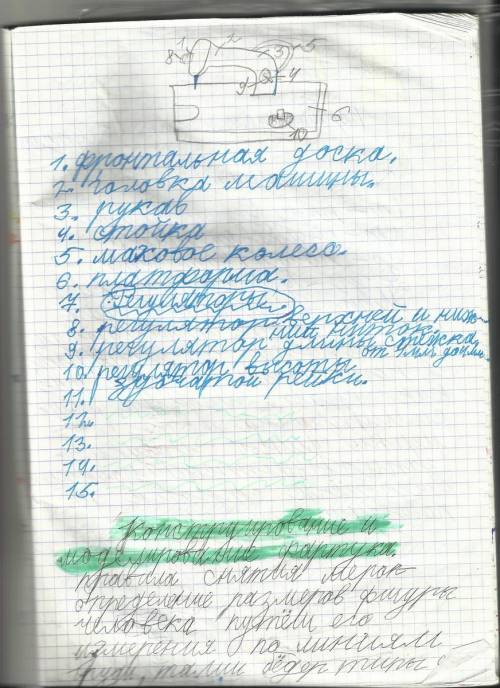 1 2 3 5
8 9 4
6
10
1. фронтальная доска.
2. головка машины.
3. рукав
4. стойка
5. маховое колесо.
6. платформа.
7. Регуляторы.
8. регулятор верхней и ниж-
ний ниток.
9. регулятор длины стежка
от 1мм до 4мм.
10. регулятор высоты
11. зубчатой рейки.
12.
13.
14.
15.
Конструирование и
моделирование фартука.
правила снятия мерок
определение размеров фигуры
человека путём его
измерения по линиям
груди, талии бёдер